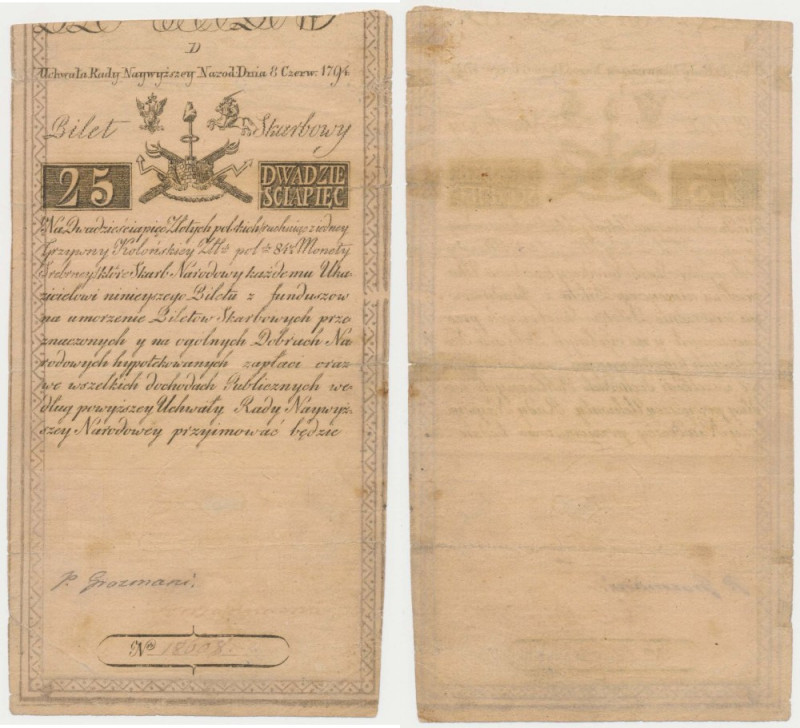 D
Uchwała Rady Naywyższey Narod: Dnia 8 Czerw: 1794.
Bilet Skarbowy
25 DWADZIE
SCIAPIĘC
Na Dwadzieściapięć Złotych polskich rachuiąc z iedney
Grzywny Kolońskiey Złt: pol: 84½ Monety
Srebrney które Skarb Narodowy każdemu Uka
zicielowi ninieyszego Biletu z funduszow
na umorzenie Biletow Skarbowych prze
znaczonych y na ogolnych Dobrach Na
rodowych hypotekowanych zapłaci oraz
we wszelkich dochodach Publicznych we
dług powyższey Uchwały Rady Naywyż
szey Narodowey przyimować będzie
P. Grozmani.
No 18008.